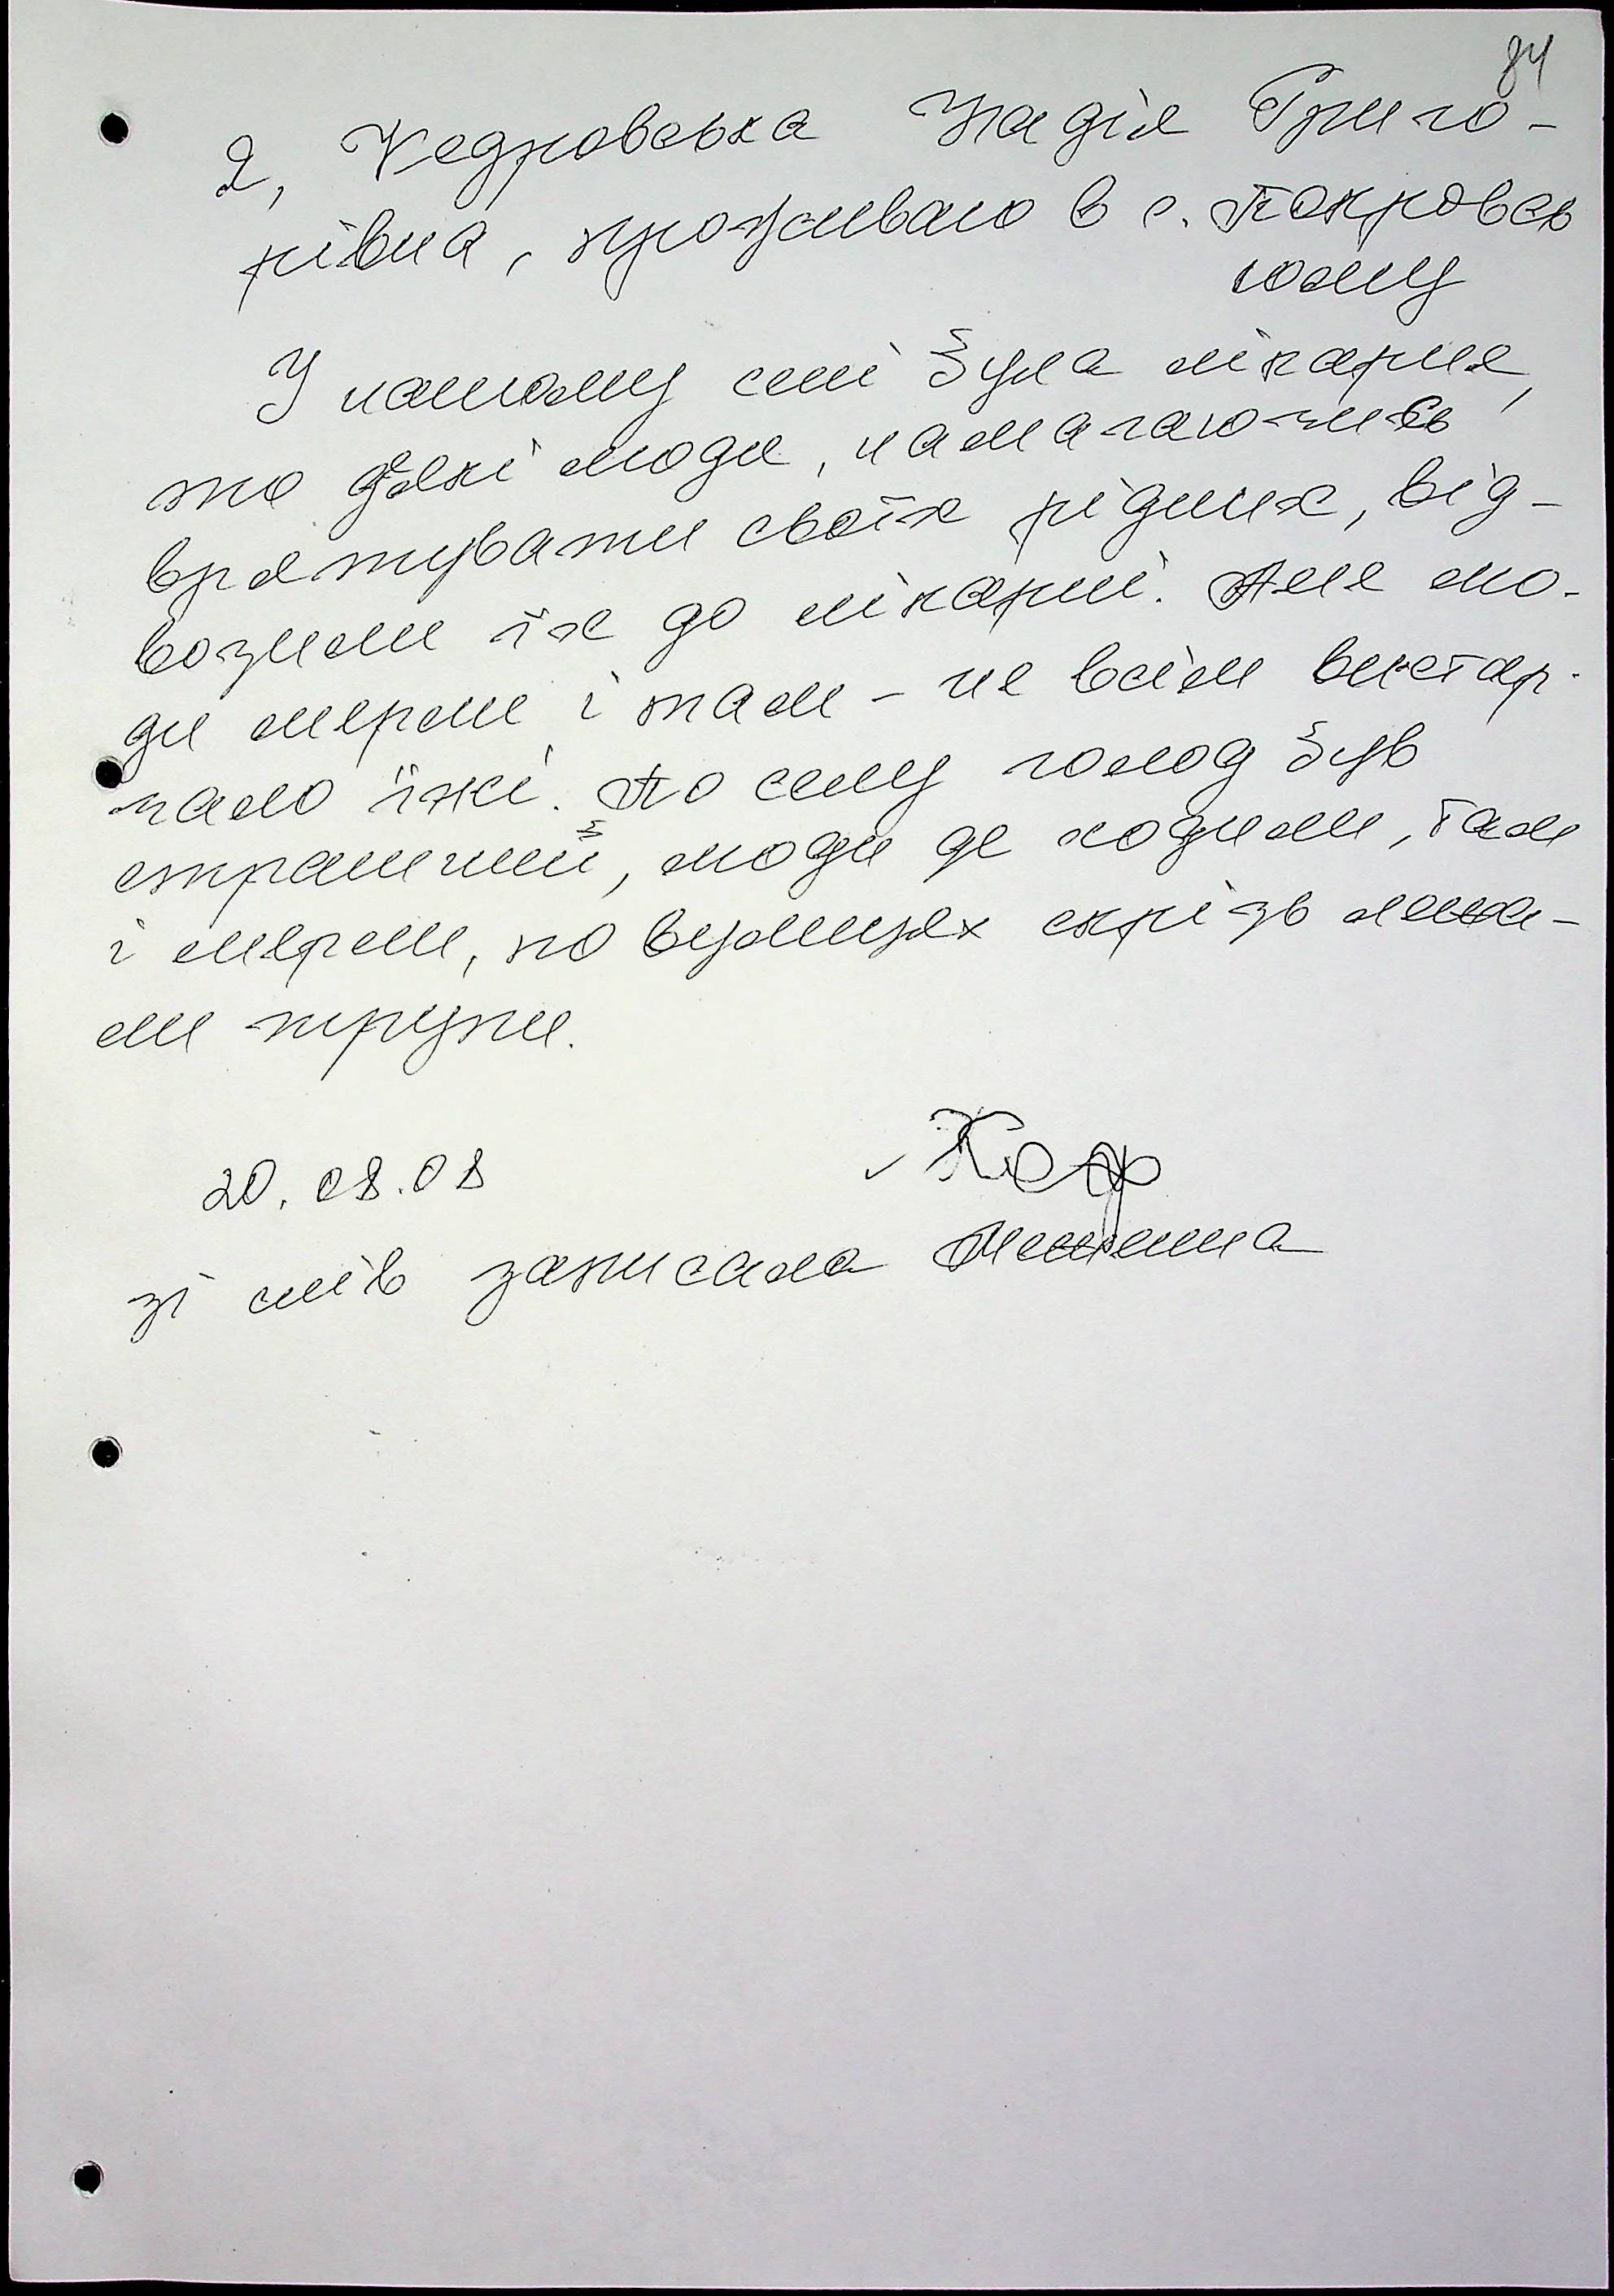 84
Я, Кедровська Надія Григо-
рівна, проживаю в с. Покровсь
кому
У нашому селі була лікарня,
то деякі люди, намагаючись
врятувати своїх рідних, від-
возили їх до лікарні. Але лю-
ди мерли і там - не всім вистар-
чало їжі. По селу голод був
страшний, люди де ходили, там
і мерли, по вулицях скрізь лежа-
ли трупи.
20.08.08
Кедр
зі слів записала